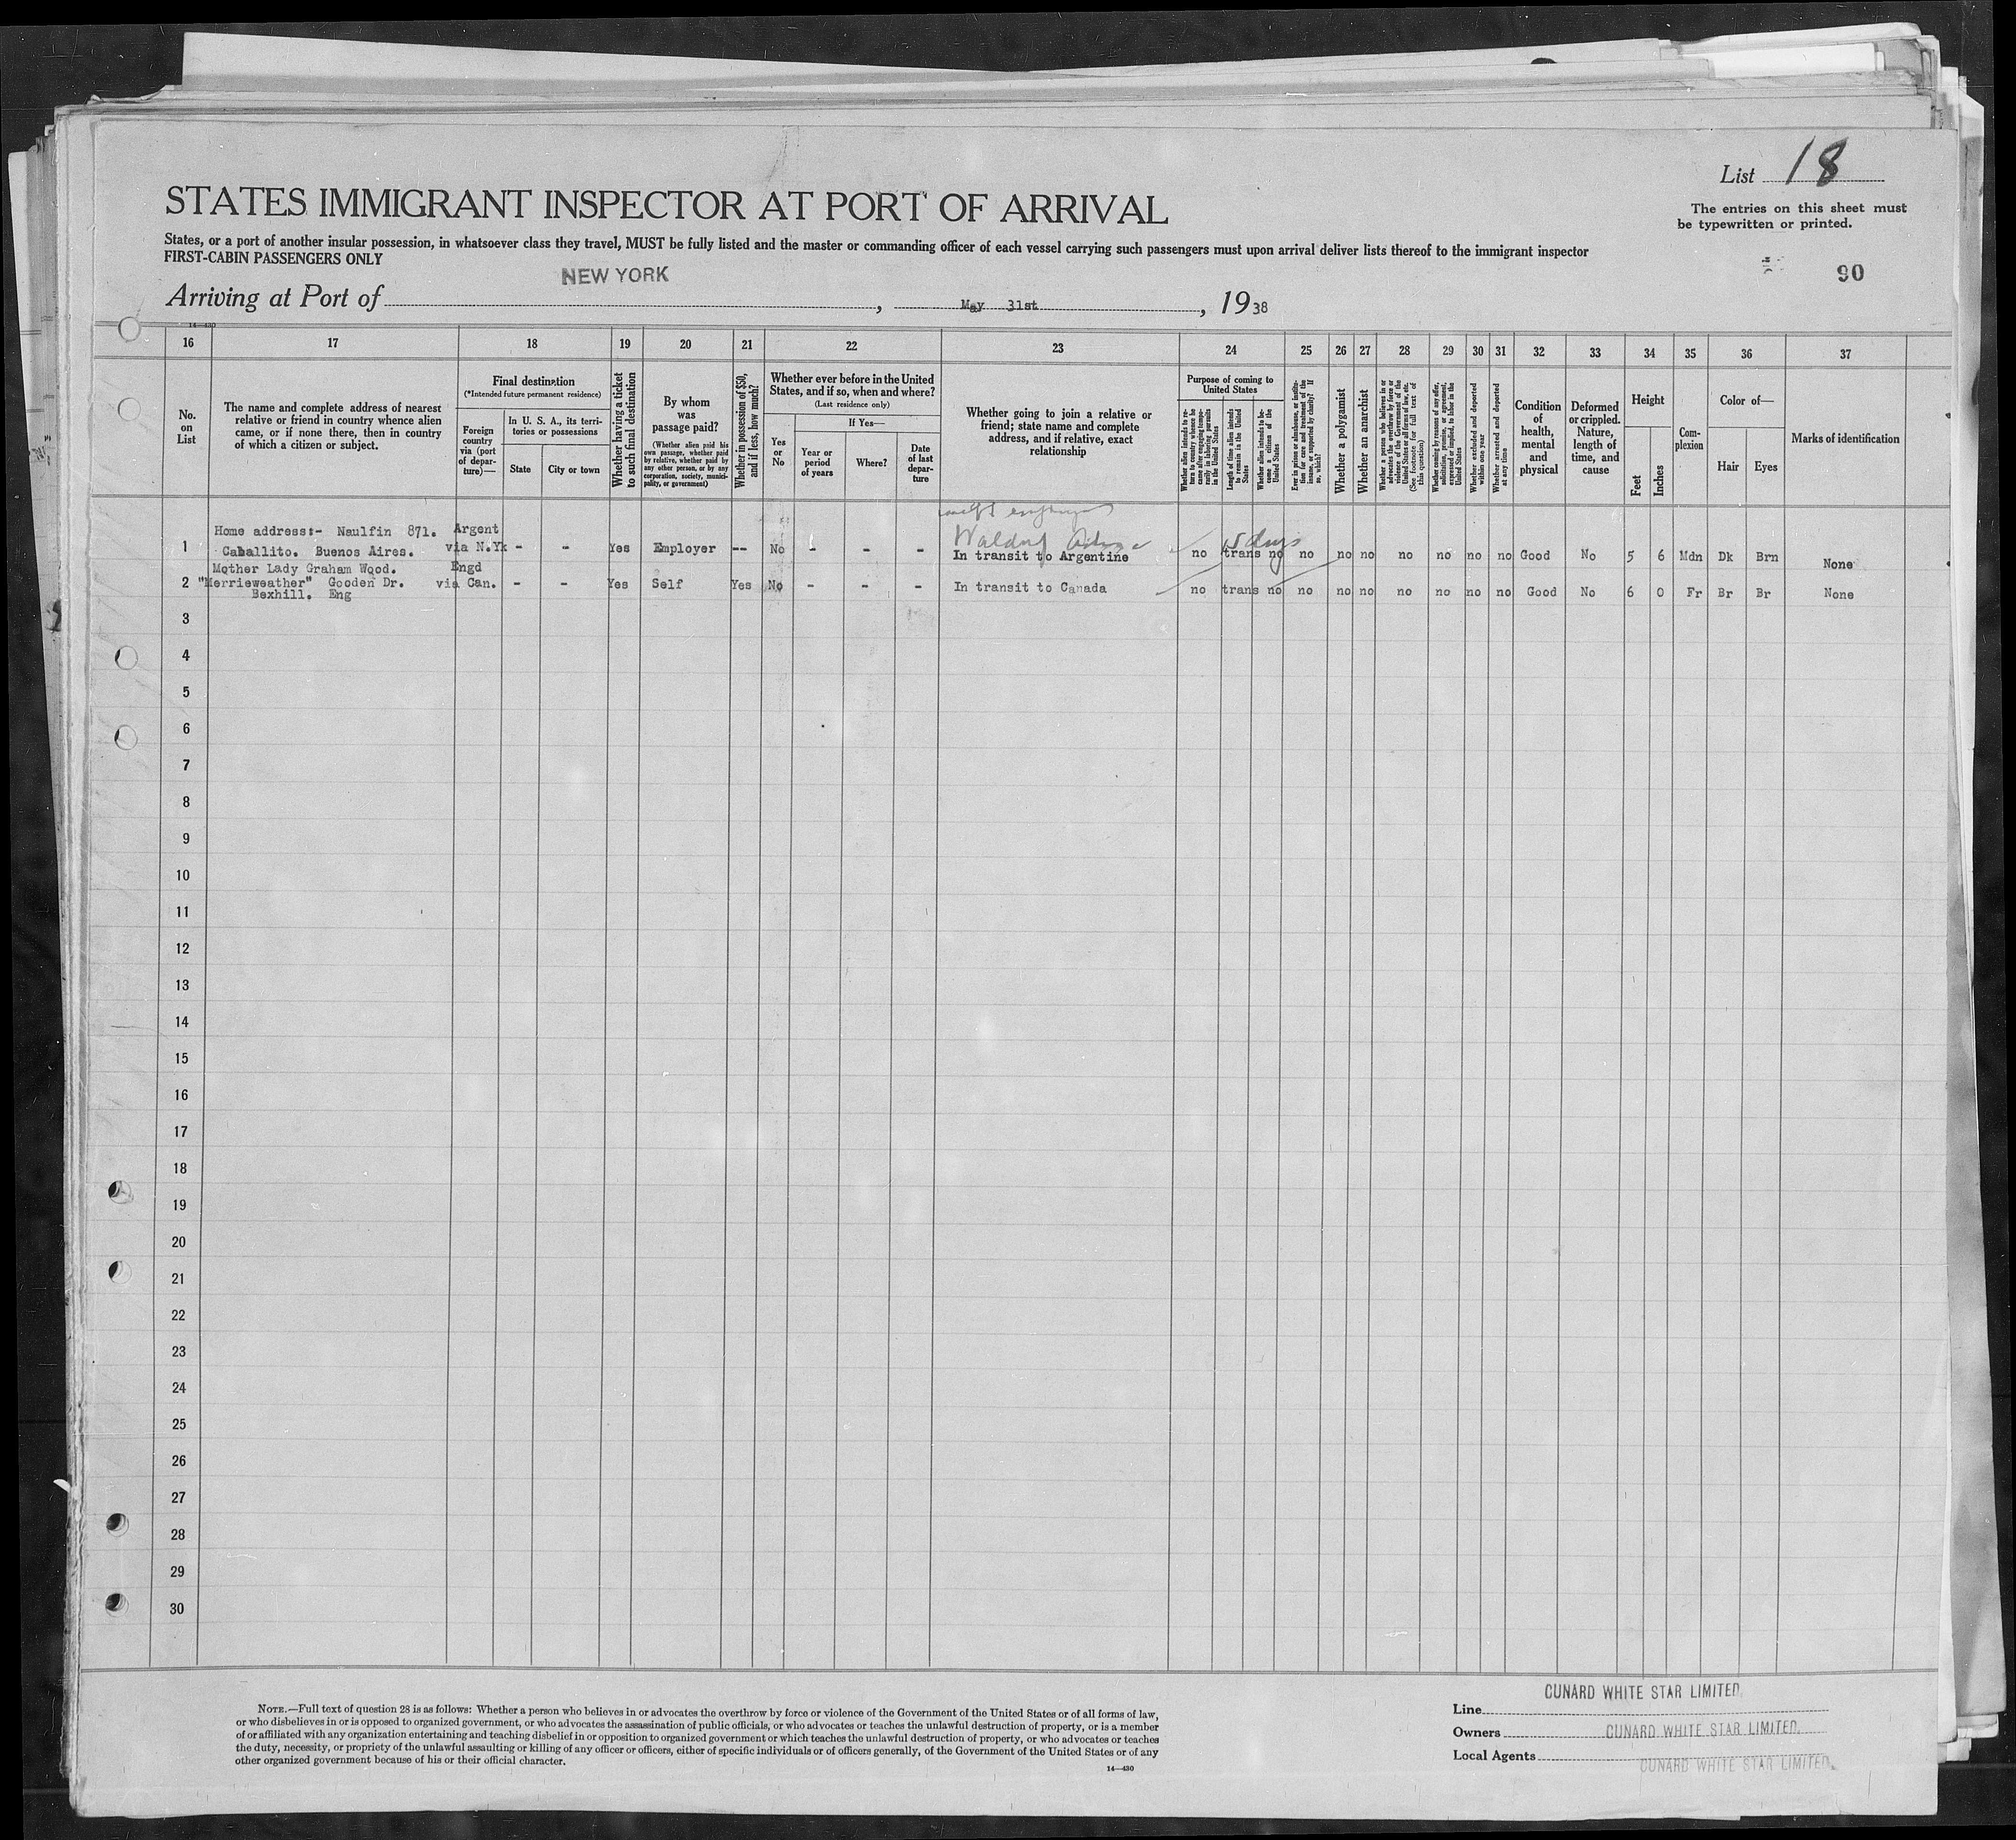 List 18
STATES IMMIGRANT INSPECTOR AT PORT OF ARRIVAL
The entries on this sheet must
be typewritten or printed.
States, or a port of another insular possession, in whatsoever class they travel, MUST be fully listed and the master or commanding officer of each vessel carrying such passengers must upon arrival deliver lists thereof to the immigrant inspector
FIRST-CABIN PASSENGERS ONLY
90
NEW YORK
Arriving at Port of , May 31st , 1938
14—430
16 17 18 19 20 21 22 23 24 25 26 27 28 29 30 31 32 33 34 35 36 37
No.
on
List
The name and complete address of nearest
relative or friend in country whence alien
came, or if none there, then in country
of which a citizen or subject.
Final destination
(*Intended future permanent residence)
Foreign
country
via (port
of depar-
ture)—
In U. S. A., its terri-
tories or possessions
State
City or town
Whether having a ticket
to such final destination
By whom
was
passage paid?
(Whether alien paid his
own passage, whether paid
by relative, whether paid by
any other person, or by any
corporation, society, munici-
pality, or government)
Whether in possession of $50,
and if less, how much?
Whether ever before in the United
States, and if so, when and where?
(Last residence only)
Yes
or
No
If Yes—
Year or
period
of years
Where?
Date
of last
depar-
ture
Whether going to join a relative or
friend; state name and complete
address, and if relative, exact
relationship
Purpose of coming to
United States
Whether alien intends to re-
turn to country whence he
came after engaging tempo-
rarily in laboring pursuits
in the United States
Length of time alien intends
to remain in the United
States
Whether alien intends to be-
come a citizen of the
United States
Ever in prison or almshouse, or institu-
tion for care and treatment of the
insane, or supported by charity? If
so, which?
Whether a polygamist
Whether an anarchist
Whether a person who believes in or
advocates the overthrow by force or
violence of the Government of the
United States or all forms of law, etc.
(See footnote for full text of
this question)
Whether coming by reason of any offer,
solicitation, promise, or agreement,
expressed or implied, to labor in the
United States
Whether excluded and deported
within one year
Whether arrested and deported
at any time
Condition
of
health,
mental
and
physical
Deformed
or crippled.
Nature,
length of
time, and
cause
Height
Feet
Inches
Com-
plexion
Color of—
Hair
Eyes
Marks of identification
Home address:- Naulfin 871. Argent
Waldorf 5 days
1 Caballito. Buenos Aires. via N.Yk - - Yes Employer -- No - - - In transit to Argentine no trans no no no no no no no no Good No 5 6 Mdn Dk Brn None
Mother Lady Graham Wood. Engd
2 "Merrieweather" Gooden Dr. via Can. - - Yes Self Yes No - - - In transit to Canada no trans no no no no no no no no Good No 6 0 Fr Br Br None
Bexhill. Eng
3
4
5
6
7
8
9
10
11
12
13
14
15
16
17
18
19
20
21
22
23
24
25
26
27
28
29
30
NOTE.—Full text of question 28 is as follows: Whether a person who believes in or advocates the overthrow by force or violence of the Government of the United States or of all forms of law,
or who disbelieves in or is opposed to organized government, or who advocates the assassination of public officials, or who advocates or teaches the unlawful destruction of property, or is a member
of or affiliated with any organization entertaining and teaching disbelief in or opposition to organized government or which teaches the unlawful destruction of property, or who advocates or teaches
the duty, necessity, or propriety of the unlawful assaulting or killing of any officer or officers, either of specific individuals or of officers generally, of the Government of the United States or of any
other organized government because of his or their official character.
14—430
Line CUNARD WHITE STAR LIMITED.
Owners CUNARD WHITE STAR LIMITED.
Local Agents CUNARD WHITE STAR LIMITED.